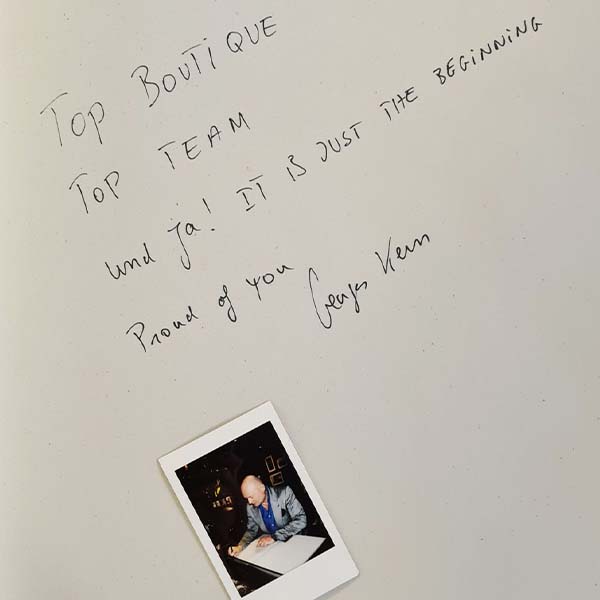 TOP BOUTIQUE
TOP TEAM
und ja! IT IS JUST THE BEGINNING
Proud of you
Georges Kern